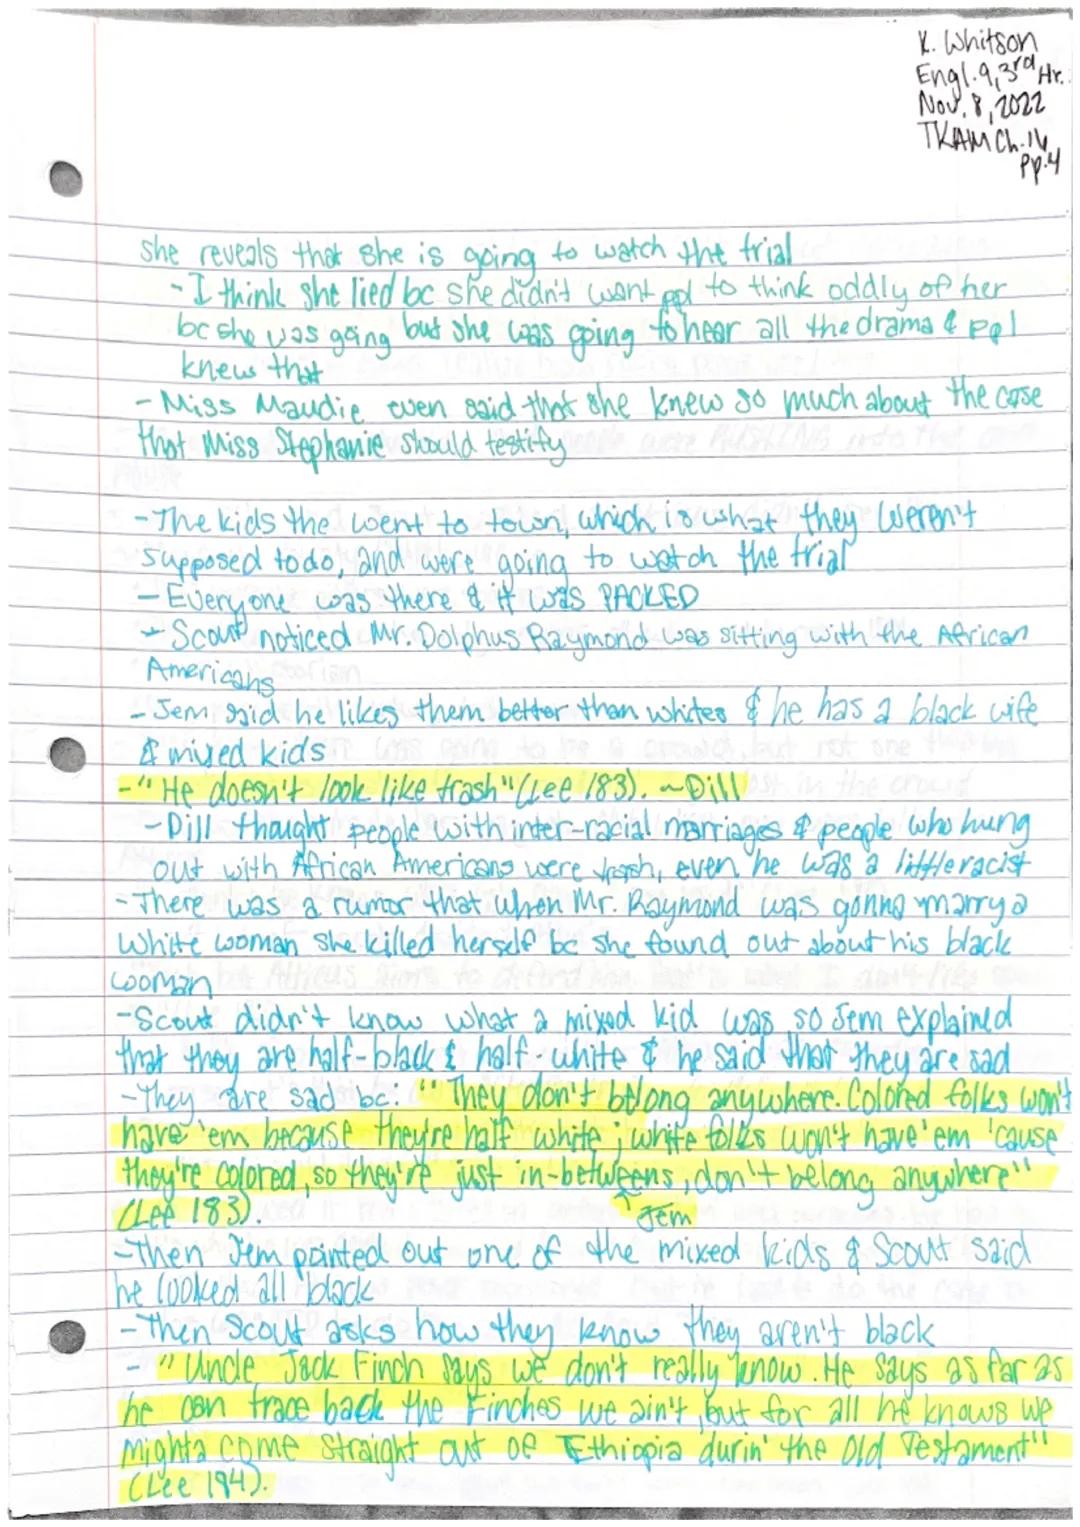 K. Whitson
Engl. 9, 3rd Hr.
Nov. 8, 2022
TKAM Ch. 16
pp. 4
she reveals that she is going to watch the trial
- I think she lied bc she didn't want ppl to think oddly of her
bc she was going but she was going to hear all the drama & ppl
knew that
- Miss Maudie even said that she knew so much about the case
that Miss Stephanie should testify
- The kids the went to town, which is what they weren't
supposed to do, and were going to watch the trial
- Everyone was there & it was PACKED
- Scout noticed Mr. Dolphus Raymond was sitting with the African
Americans
- Jem said he likes them better than whites & he has a black wife
& mixed kids
- "He doesn't look like trash" (Lee 183). ~Dill
- Dill thought people with inter-racial marriages & people who hung
out with African Americans were trash, even he was a little racist
- There was a rumor that when Mr. Raymond was gonna marry a
white woman she killed herself bc she found out about his black
woman
- Scout didn't know what a mixed kid was so Jem explained
that they are half-black & half-white & he said that they are sad
- They are sad bc: "They don't belong anywhere. Colored folks won't
have 'em because they're half white; white folks won't have 'em 'cause
they're colored, so they're just in-betweens, don't belong anywhere"
(Lee 183). Jem
- Then Jem pointed out one of the mixed kids & Scout said
he looked all black
- Then Scout asks how they know they aren't black
- "Uncle Jack Finch says we don't really know. He says as far as
he can trace back the Finches we ain't, but for all he knows we
mighta come straight out of Ethiopia durin' the Old Testament"
(Lee 184).